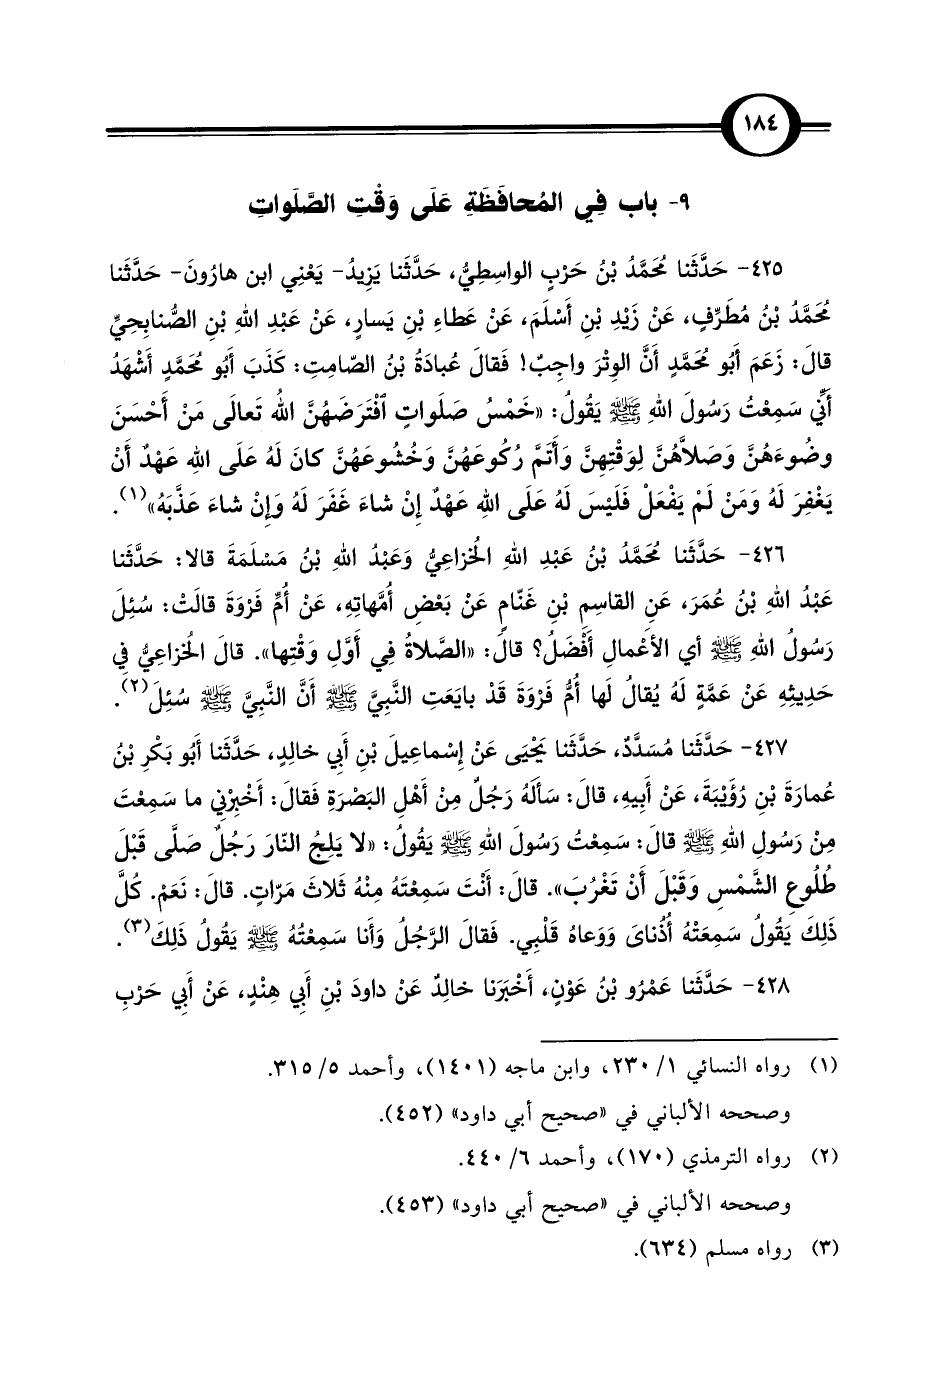 ١٨٤
٩- باب فِي المُحافَظَةِ عَلَى وَقْتِ الصَّلَواتِ
٤٢٥- حَدَّثَنا مُحَمَّدُ بْنُ حَرْبٍ الواسِطِيُّ، حَدَّثَنا يَزِيدُ- يَعْنِي ابن هارُونَ- حَدَّثَنا
مُحَمَّدُ بْنُ مُطَرِّفٍ، عَنْ زَيْدِ بْنِ أَسْلَمَ، عَنْ عَطاءِ بْنِ يَسارٍ، عَنْ عَبْدِ اللهِ بْنِ الصُّنابِحِيِّ
قالَ: زَعَمَ أَبُو مُحَمَّدٍ أَنَّ الوِتْرَ واجِبٌ! فَقالَ عُبادَةُ بْنُ الصّامِتِ: كَذَبَ أَبُو مُحَمَّدٍ أَشْهَدُ
أَنِّي سَمِعْتُ رَسُولَ اللهِ ﷺ يَقُولُ: «خَمْسُ صَلَواتٍ ٱفْتَرَضَهُنَّ اللهُ تَعالَى مَنْ أَحْسَنَ
وضُوءَهُنَّ وَصَلاَّهُنَّ لِوَقْتِهِنَّ وَأَتَمَّ رُكُوعَهُنَّ وَخُشُوعَهُنَّ كانَ لَهُ عَلَى اللهِ عَهْدٌ أَنْ
يَغْفِرَ لَهُ وَمَنْ لَمْ يَفْعَلْ فَلَيْسَ لَهُ عَلَى اللهِ عَهْدٌ إِنْ شاءَ غَفَرَ لَهُ وَإِنْ شاءَ عَذَّبَهُ»(١).
٤٢٦- حَدَّثَنا مُحَمَّدُ بْنُ عَبْدِ اللهِ الخُزاعِيُّ وَعَبْدُ اللهِ بْنُ مَسْلَمَةَ قالا: حَدَّثَنا
عَبْدُ اللهِ بْنُ عُمَرَ، عَنِ القاسِمِ بْنِ غَنّامٍ عَنْ بَعْضِ أُمَّهاتِهِ، عَنْ أُمِّ فَرْوَةَ قالَتْ: سُئِلَ
رَسُولُ اللهِ ﷺ أي الأَعْمالِ أَفْضَلُ؟ قالَ: «الصَّلاةُ فِي أَوَّلِ وَقْتِها». قالَ الخُزاعِيُّ فِي
حَدِيثِهِ عَنْ عَمَّةٍ لَهُ يُقالُ لَها أُمُّ فَرْوَةَ قَدْ بايَعَتِ النَّبِيَّ ﷺ أَنَّ النَّبِيَّ ﷺ سُئِلَ(٢).
٤٢٧- حَدَّثَنا مُسَدَّدٌ، حَدَّثَنا يَحْيَى عَنْ إِسْماعِيلَ بْنِ أَبِي خالِدٍ، حَدَّثَنا أَبُو بَكْرِ بْنُ
عُمارَةَ بْنِ رُؤَيْبَةَ، عَنْ أَبِيهِ، قالَ: سَأَلَهُ رَجُلٌ مِنْ أَهْلِ البَصْرَةِ فَقالَ: أَخْبِرْنِي ما سَمِعْتَ
مِنْ رَسُولِ اللهِ ﷺ قالَ: سَمِعْتُ رَسُولَ اللهِ ﷺ يَقُولُ: «لا يَلِجُ النّارَ رَجُلٌ صَلَّى قَبْلَ
طُلُوعِ الشَّمْسِ وَقَبْلَ أَنْ تَغْرُبَ». قالَ: أَنْتَ سَمِعْتَهُ مِنْهُ ثَلاثَ مَرّاتٍ. قالَ: نَعَمْ. كُلَّ
ذَلِكَ يَقُولُ سَمِعَتْهُ أُذُنايَ وَوَعاهُ قَلْبِي. فَقالَ الرَّجُلُ وَأَنا سَمِعْتُهُ ﷺ يَقُولُ ذَلِكَ(٣).
٤٢٨- حَدَّثَنا عَمْرُو بْنُ عَوْنٍ، أَخْبَرَنا خالِدٌ عَنْ داودَ بْنِ أَبِي هِنْدٍ، عَنْ أَبِي حَرْبِ
(١) رواه النسائي ١/ ٢٣٠، وابن ماجه (١٤٠١)، وأحمد ٥/ ٣١٥.
وصححه الألباني في «صحيح أبي داود» (٤٥٢).
(٢) رواه الترمذي (١٧٠)، وأحمد ٦/ ٤٤٠.
وصححه الألباني في «صحيح أبي داود» (٤٥٣).
(٣) رواه مسلم (٦٣٤).